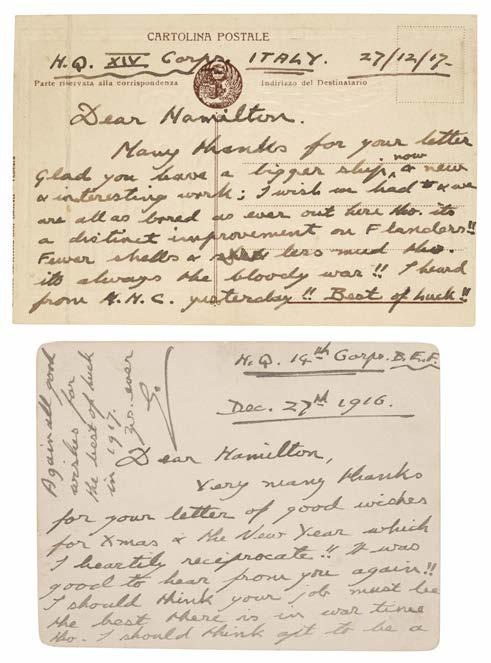 CARTOLINA POSTALE
H.Q. XIV Corps, ITALY. 27/12/17.
Parte riservata alla corrispondenza Indirizzo del Destinatario
Dear Hamilton.
Many thanks for your letter
Glad you have a bigger ship, now & new
& interesting work; I wish we had & we
are all as bored as ever out here tho. its
a distinct improvement on Flanders!!
Fewer shells & less mud tho.
its always the bloody war!! I heard
from H.H.C. yesterday!! Best of luck!!
H.Q. 14th Corps. B.E.F.
Dec. 27th 1916.
Dear Hamilton,
Very many thanks
for your letter of good wishes
for Xmas & the New Year which
I heartily reciprocate!! It was
good to hear from you again!!
I should think your job must be
the best there is in war time
tho. I should think apt to be a
Again all good
wishes for
the best of luck
in 1917.
Yrs. ever
E.